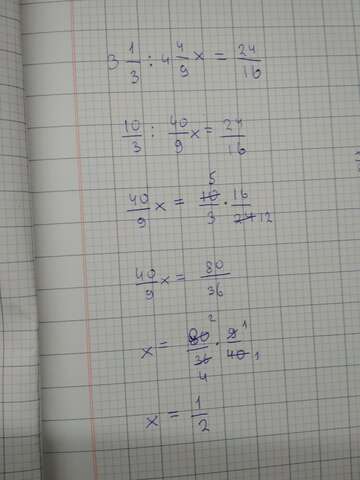 3 1/3 : 4 4/9 x = 24/16
10/3 : 40/9 x = 24/16
40/9 x = 10/3 5 · 16/24 12
40/9 x = 80/36
x = 80/36 2 4 · 9/40 1 1
x = 1/2